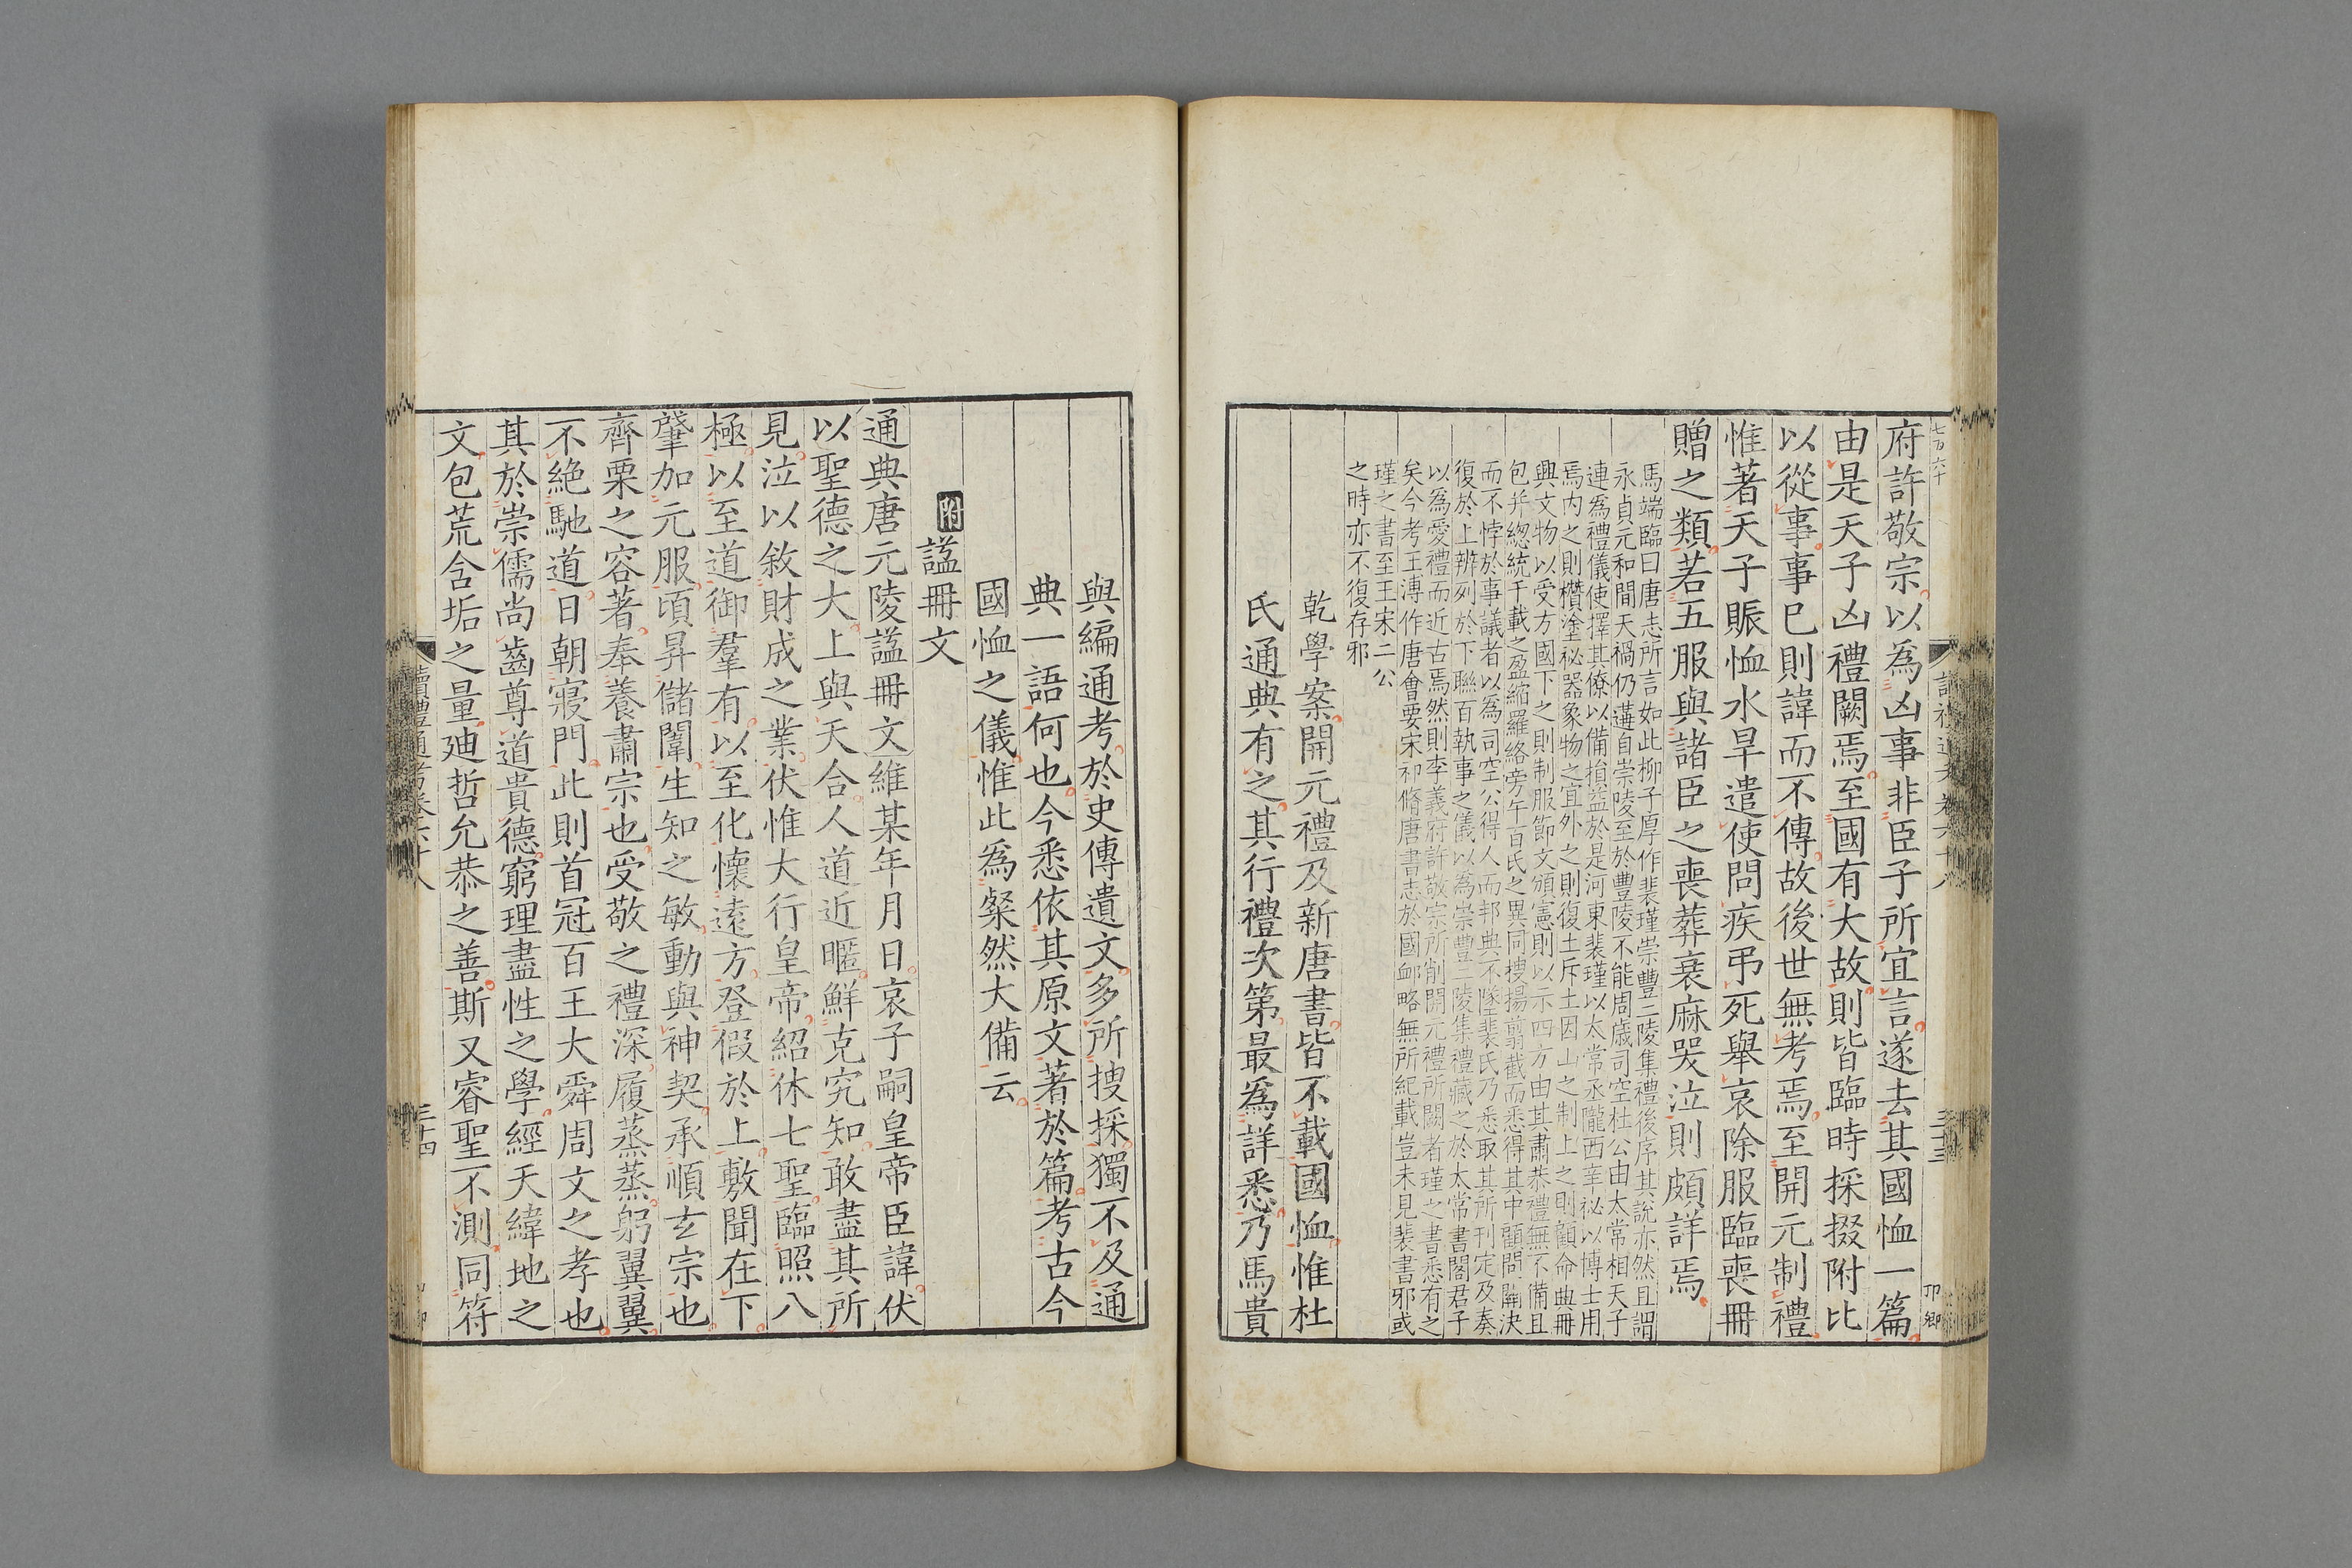 七百六十
讀禮通考卷六十八
三十三
邛卿
府許敬宗以爲凶事非臣子所宜言遂去其國恤一篇
由是天子凶禮闕焉至國有大故則皆臨時採掇附比
以從事事巳則諱而不傳故後世無考焉至開元制禮
惟著天子賑恤水旱遣使問疾弔死舉哀除服臨喪冊
贈之類若五服與諸臣之喪葬衰麻哭泣則頗詳焉
馬端臨曰唐志所言如此柳子厚作裴瑾崇豐二陵集禮後序其說亦然且謂
永貞元和間天禍仍遘自崇陵至於豐陵不能周歲司空杜公由太常相天子
連爲禮儀使擇其僚以備損益於是河東裴瑾以太常丞隴西辛祕以博士用
焉内之則欑塗祕器象物之宜外之則復土斥土因山之制上之則顧命典冊
興文物以受方國下之則制服節文頒憲則以示四方由其肅恭禮無不備且
包并總統千載之盈縮羅絡旁午百氏之異同搜揚翦截而悉得其中顧問關決
而不悖於事議者以爲司空公得人而邦典不墜裴氏乃悉取其所刊定及奏
復於上辨列於下聯百執事之儀以爲崇豐二陵集禮藏之於太常書閣君子
以爲愛禮而近古焉然則李義府許敬宗所削開元禮所闕者瑾之書悉有之
矣今考王溥作唐會要宋祁脩唐書志於國䘏略無所紀載豈未見裴書邪或
瑾之書至王宋二公
之時亦不復存邪
乾學案開元禮及新唐書皆不載國恤惟杜
氏通典有之其行禮次第最爲詳悉乃馬貴
與編通考於史傳遺文多所搜採獨不及通
典一語何也今悉依其原文著於篇考古今
國恤之儀惟此爲粲然大備云
附諡冊文
通典唐元陵諡冊文維某年月日哀子嗣皇帝臣諱伏
以聖德之大上與天合人道近暱鮮克究知敢盡其所
見泣以敘財成之業伏惟大行皇帝紹休七聖臨照八
極以至道御羣有以至化懷遠方登假於上敷聞在下
肇加元服頃昇儲闈生知之敏動與神契承順玄宗也
齊栗之容著奉養肅宗也受敬之禮深履蒸蒸躬翼翼
不絶馳道日朝寢門此則首冠百王大舜周文之孝也
其於崇儒尚齒尊道貴德窮理盡性之學經天緯地之
文包荒含垢之量廸哲允恭之善斯又睿聖不測同符
讀禮通考卷六十八
三十四